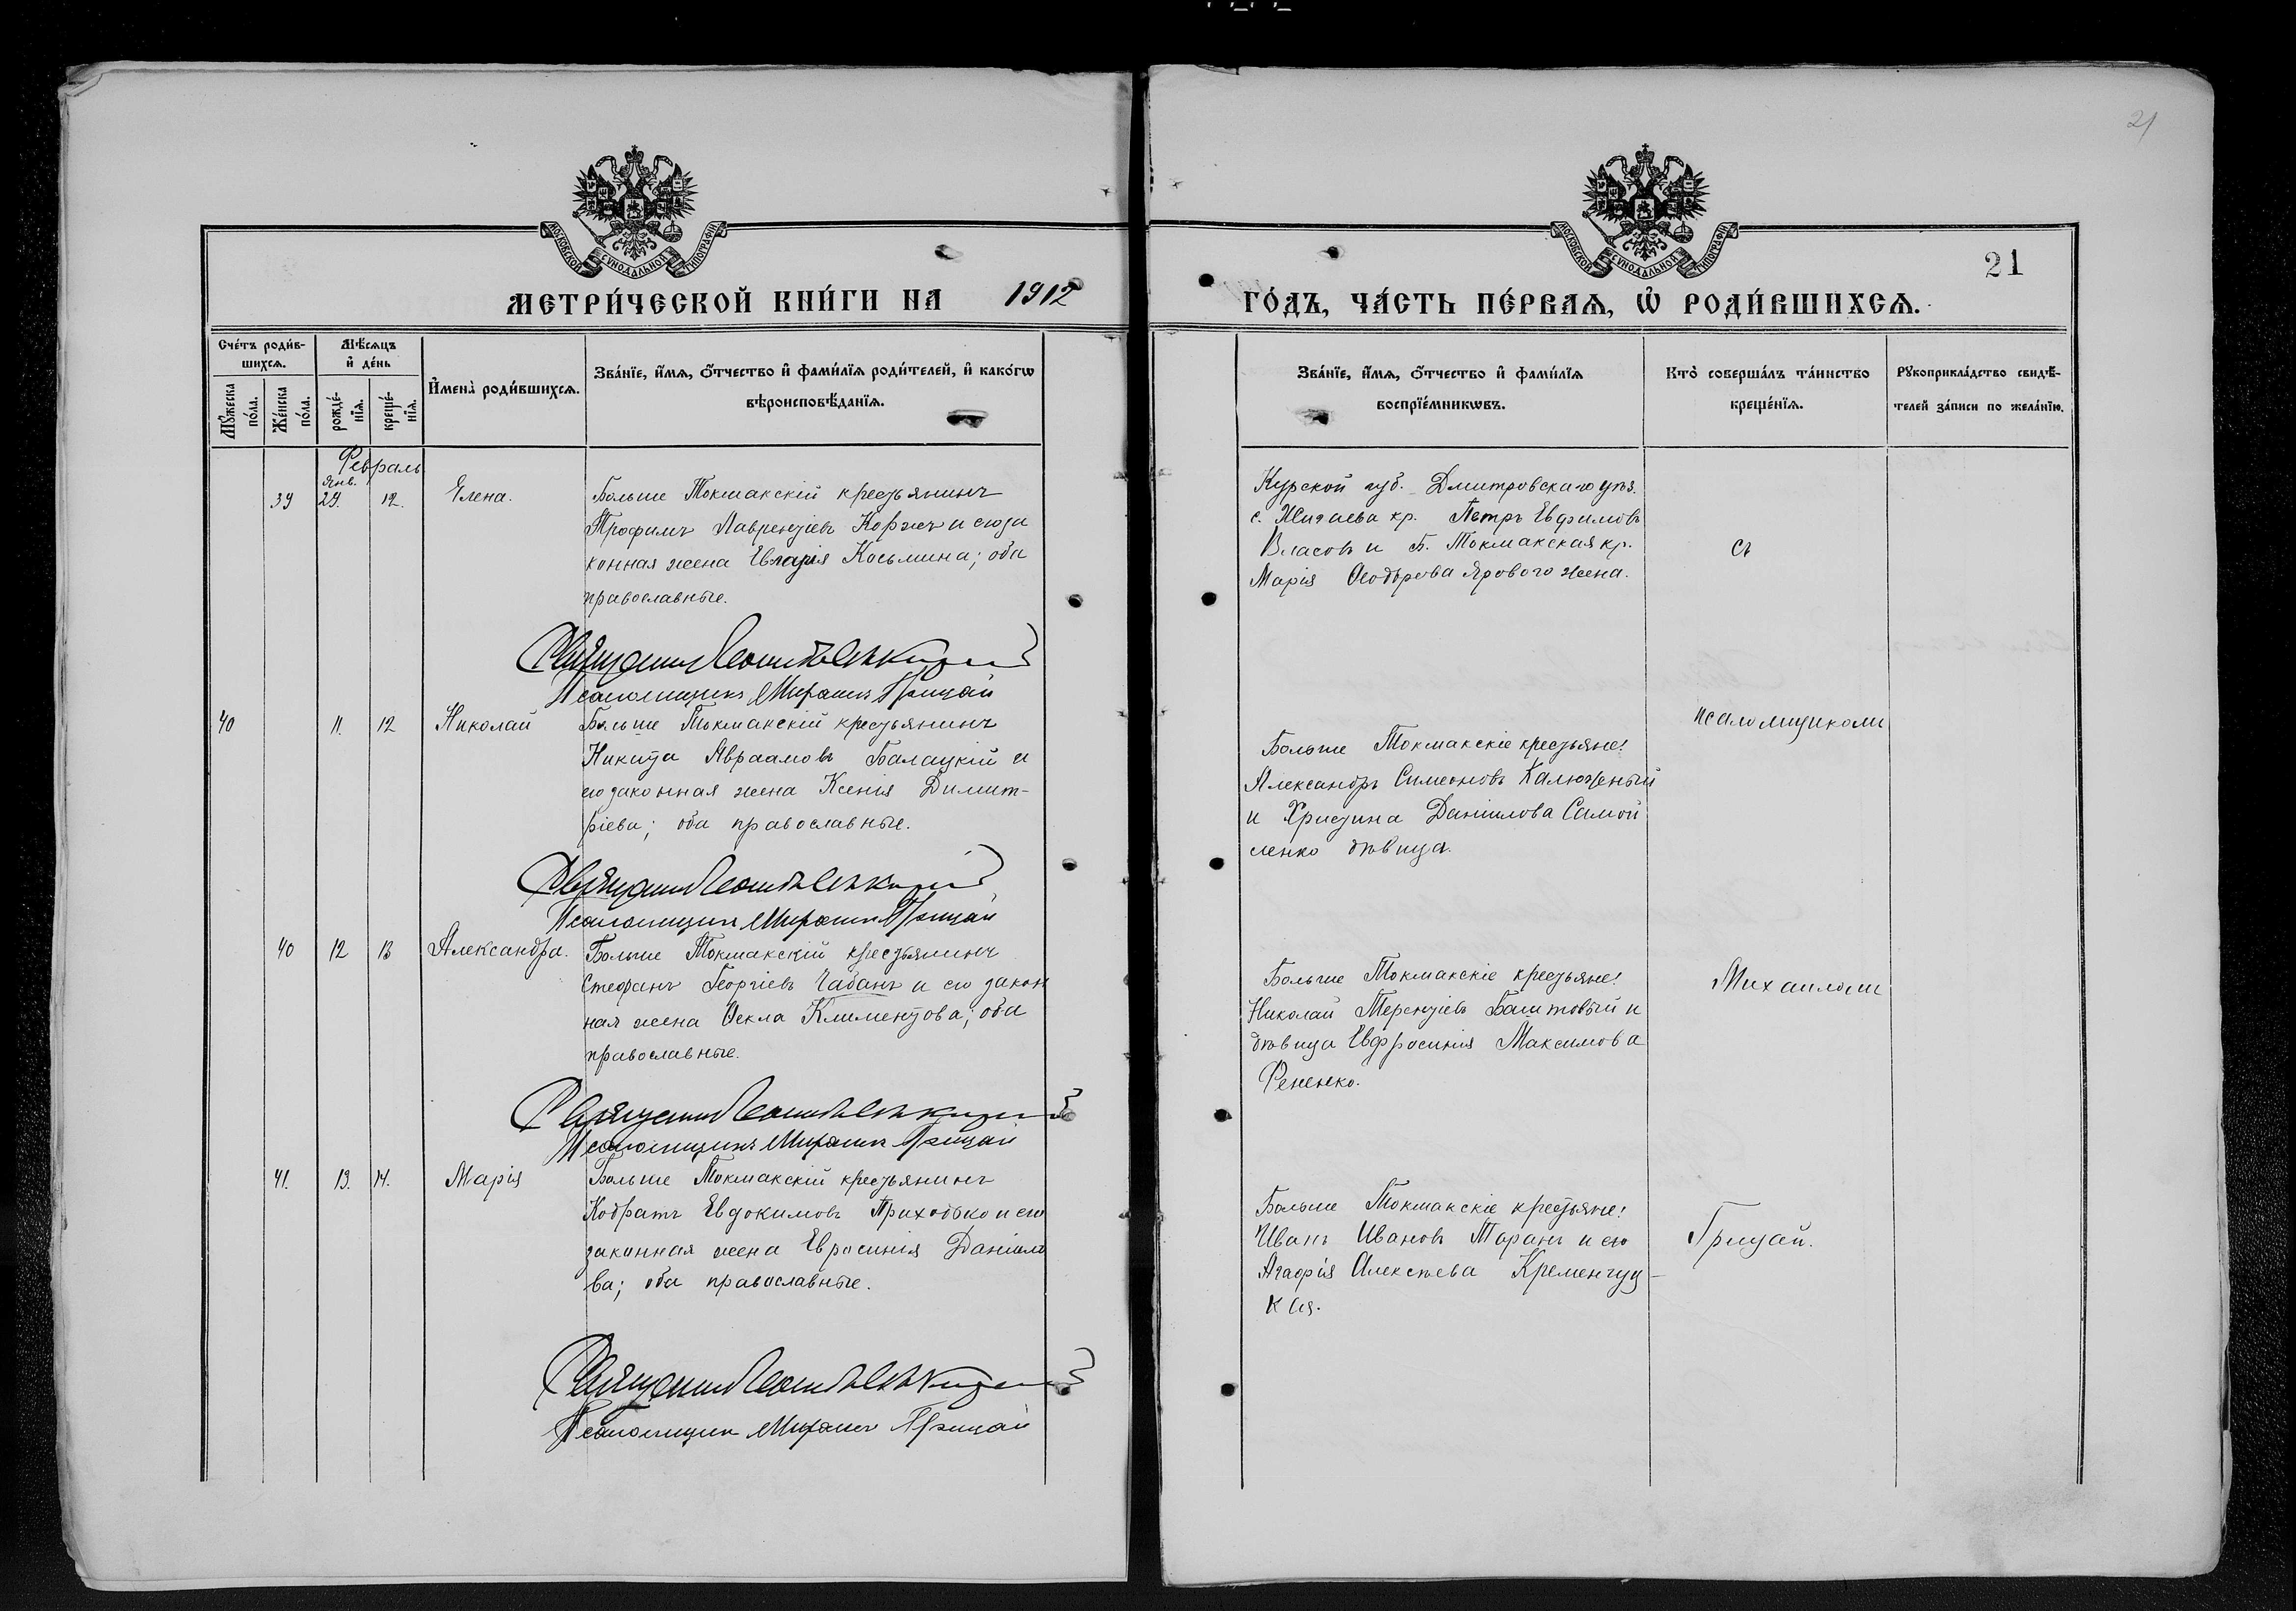 21
МОСКОВСКОЙ СѴНОДАЛЬНОЙ ТИПОГРАФІИ
МОСКОВСКОЙ СѴНОДАЛЬНОЙ ТИПОГРАФІИ
21
МЕТРИ́ЧЕСКОЙ КНИ́ГИ НА 1912
ГО́ДЪ, ЧА́СТЬ ПЕ́РВАѦ, Ѡ҆ РОДИ́ВШИХСѦ.
Сче́тъ роди́в-
шихсѧ.
Мꙋ́жеска по́ла.
Же́нска по́ла.
Мѣ́сѧцъ
и҆ де́нь
рожде́-
нїѧ.
креще́-
нїѧ.
И҆мена̀ роди́вшихсѧ.
Зва́нїе, и҆́мѧ, ѻ҆́тчество и҆ фами́лїѧ роди́телей, и҆ како́гѡ
вѣроисповѣ́данїѧ.
Зва́нїе, и҆́мѧ, ѻ҆́тчество и҆ фами́лїѧ
воспрїе́мникѡвъ.
Кто̀ соверша́лъ та́инство
креще́нїѧ.
Рꙋкоприкла́дство свидѣ́-
телей за́писи по жела́нїю.
Февраль
Янв.
39 29. 12. Елена.
Больше Токмакскій крестьянинъ
Трофимъ Лаврентіевъ Коржъ и его за
конная жена Косьмина; оба
православные.
Священникъ
Псаломщикъ Михаилъ Грицай
Курской губ. Дмитровскаго уѣз.
с. кр. Петръ Евфимовъ
Власовъ и Б. Токмакская кр.
Марія Ѳеодорова Ярового жена.
Съ
40 11. 12 Николай
Больше Токмакскій крестьянинъ
Никита Авраамовъ Балацкій и
его законная жена Ксенія Димит-
ріева; оба православные.
Священникъ
Псаломщикъ Михаилъ Грицай
Больше Токмакскіе крестьяне:
Александръ Симеоновъ Калюжный
и Христина Даніилова Самой
ленко дѣвица.
псаломщикомъ
40 12 13 Александра.
Больше Токмакскій крестьянинъ
Стефанъ Георгіевъ Чабанъ и его закон
ная жена Ѳекла Климентова; оба
православные.
Священникъ
Псаломщикъ Михаилъ Грицай
Больше Токмакскіе крестьяне:
Николай Терентіевъ Баштовый и
дѣвица Евфросинія Максимова
Фененко.
Михаиломъ
41. 13. 14. Марія
Больше Токмакскій крестьянинъ
Кодратъ Евдокимовъ Приходько и его
законная жена Евросинія Даніило
ва; оба православные.
Священникъ
Псаломщикъ Михаилъ Грицай
Больше Токмакскіе крестьяне:
Иванъ Ивановъ Таранъ и его
Агафія Алексѣева Кременчуц-
кая.
Грицай.